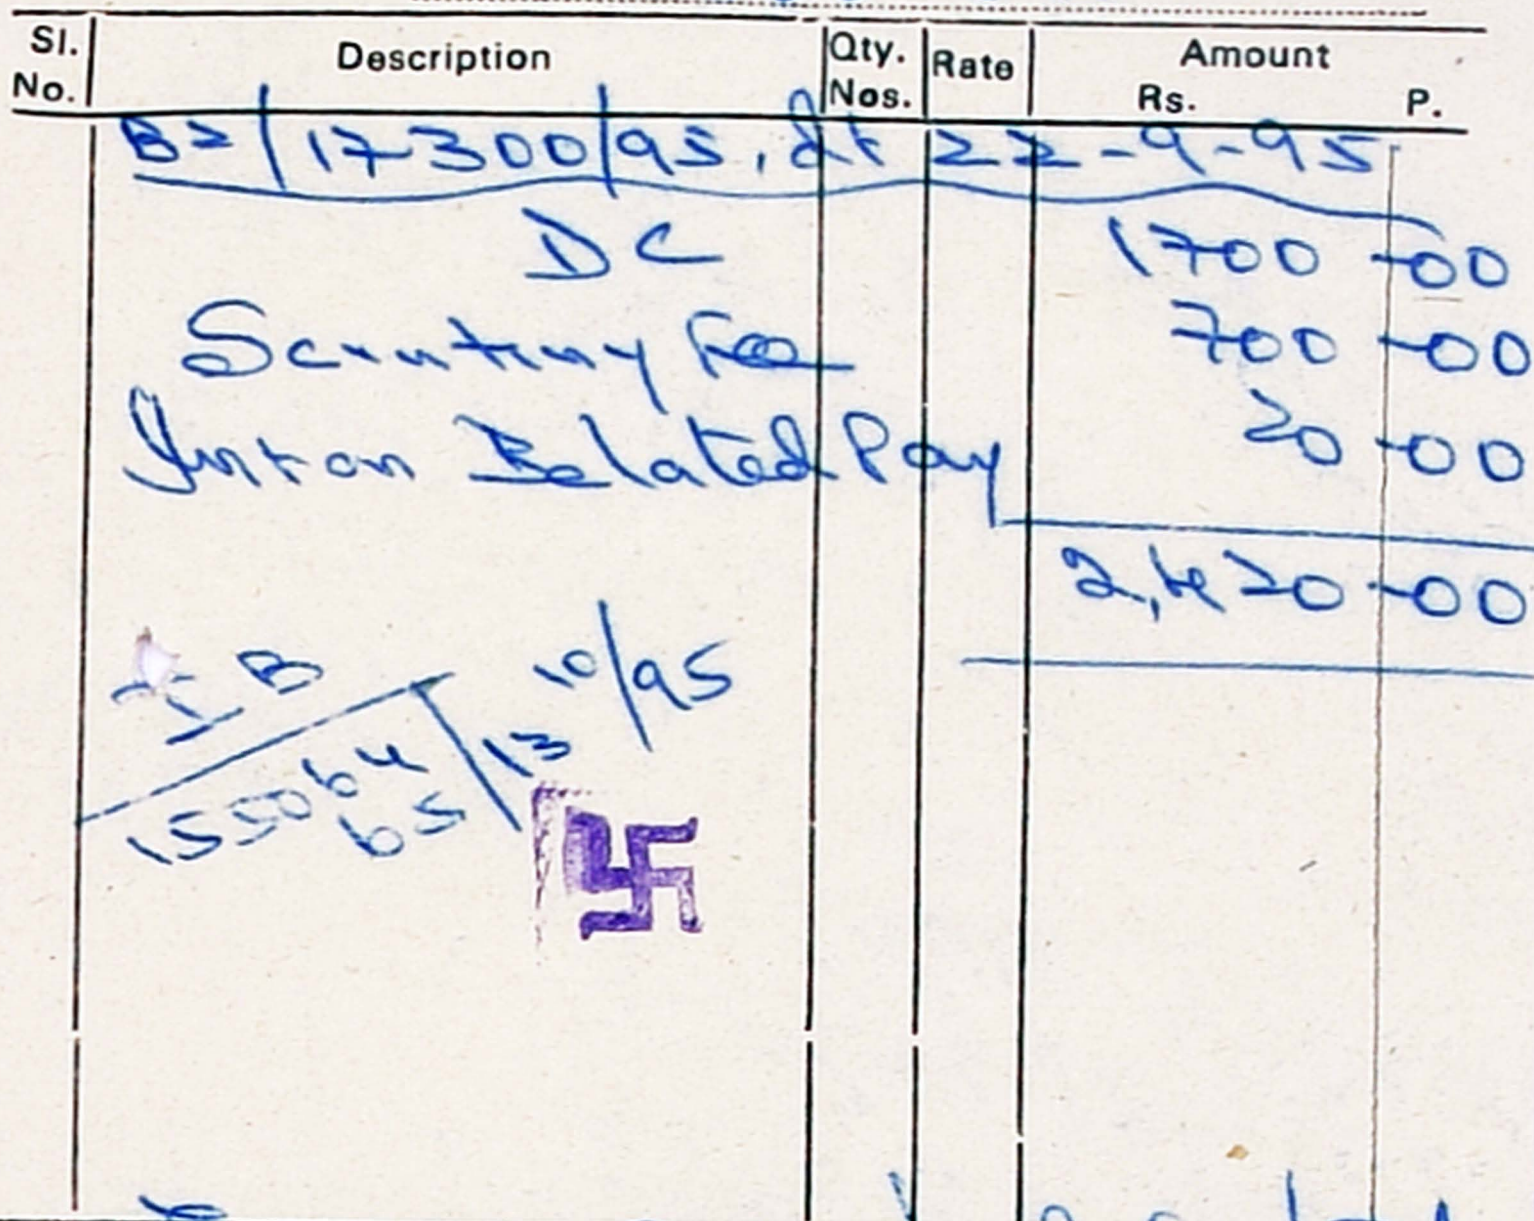 Sl. No. Description Qty. Nos. Rate Amount Rs. P.
B2/17300/95, dt 22-9-95
DC 1700-00
Scrutiny Fee 700-00
Int on Belated Pay 20-00
2,420-00
10/95
B
13
155064
65